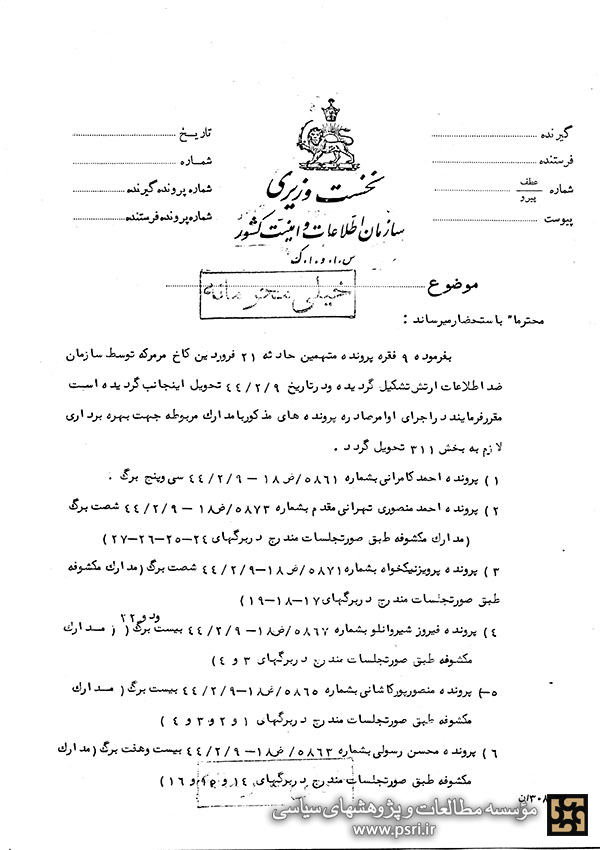 گیرنده
فرستنده
شماره عطف پیرو
پیوست
نخست وزیری
سازمان اطلاعات و امنیت کشور
س.ا.و.ا.ک
تاریخ
شماره
شماره پرونده گیرنده
شماره پرونده فرستنده
موضوع
خیلی محرمانه
محترماً باستحضار میرساند :
بفرموده ۹ فقره پرونده متهمین حادثه ۲۱ فروردین کاخ مرمر که توسط سازمان
ضد اطلاعات ارتش تشکیل گردیده و در تاریخ ۴۴/۲/۹ تحویل اینجانب گردیده است
مقرر فرمایند در اجرای اوامر صادره پرونده های مذکور با مدارک مربوطه جهت بهره برداری
لازم به بخش ۳۱۱ تحویل گردد .
۱) پرونده احمد کامرانی بشماره ۵۸۶۱/ض۱۸ - ۴۴/۲/۹ سی و پنج برگ .
۲) پرونده احمد منصوری تهرانی مقدم بشماره ۵۸۷۳/ض۱۸ - ۴۴/۲/۹ شصت برگ
(مدارک مکشوفه طبق صورتجلسات مندرج در برگهای ۲۴-۲۵-۲۶-۲۷)
۳) پرونده پرویز نیکخواه بشماره ۵۸۷۱/ض۱۸-۴۴/۲/۹ شصت برگ (مدارک مکشوفه
طبق صورتجلسات مندرج در برگهای ۱۷-۱۸-۱۹)
۴) پرونده فیروز شیروانلو بشماره ۵۸۶۷/ض۱۸-۴۴/۲/۹ بیست و دو برگ (مدارک
مکشوفه طبق صورتجلسات مندرج در برگهای ۳ و ۴)
۵-) پرونده منصور پورکاشانی بشماره ۵۸۶۵/ض۱۸-۴۴/۲/۹ بیست برگ (مدارک
مکشوفه طبق صورتجلسات مندرج در برگهای ۱ و ۲ و ۳ و ۴)
۶) پرونده محسن رسولی بشماره ۵۸۶۳/ض۱۸-۴۴/۲/۹ بیست و هفت برگ (مدارک
مکشوفه طبق صورتجلسات مندرج در برگهای ۱۴ و ۱۵ و ۱۶)
۳۰۸/ن
مؤسسه مطالعات و پژوهشهای سیاسی
www.psri.ir